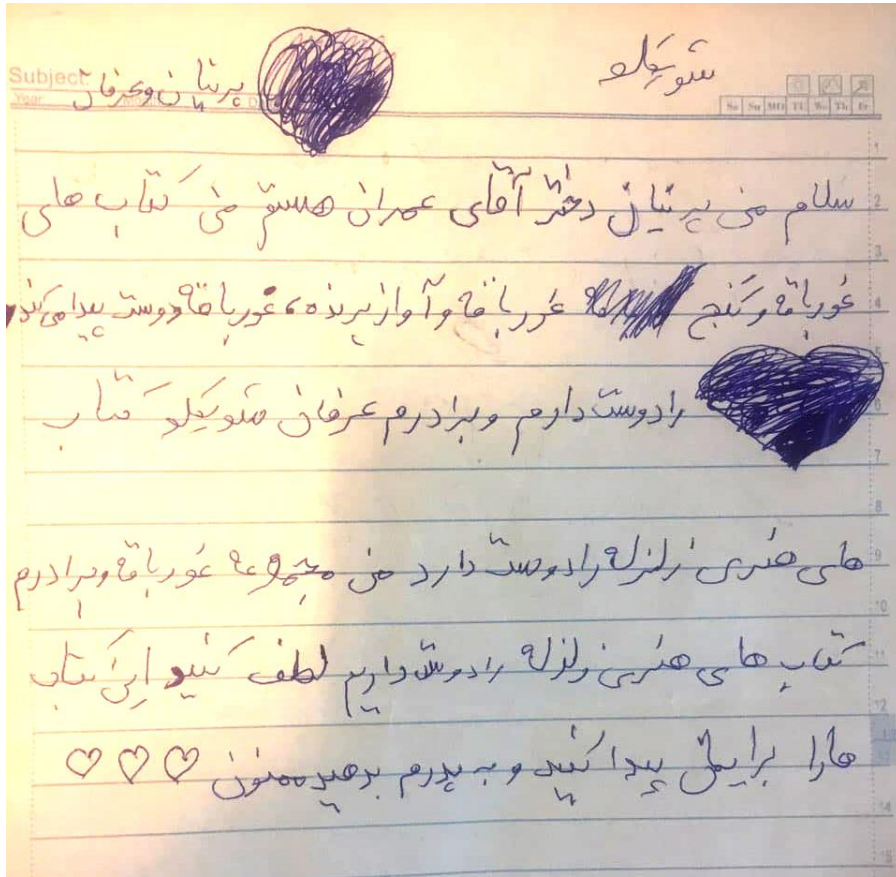 شویکو
پرنیان و عرفان
Subject:
Year
Sa Su MO Tu We Th Fr
سلام من پرنیان دختر آقای عمران هستم من کتاب های
غورباقه و گنج غورباقه و آواز پرنده، غورباقه دوست پیدا می‌کند
را دوست دارم و برادرم عرفان شویکو کتاب
های هنری زلزله را دوست دارد من مجموعه غورباقه و برادرم
کتاب های هنری زلزله را دوست داریم لطف کنید این کتاب
ها را برایمان پیدا کنید و به پدرم بدهید ممنون